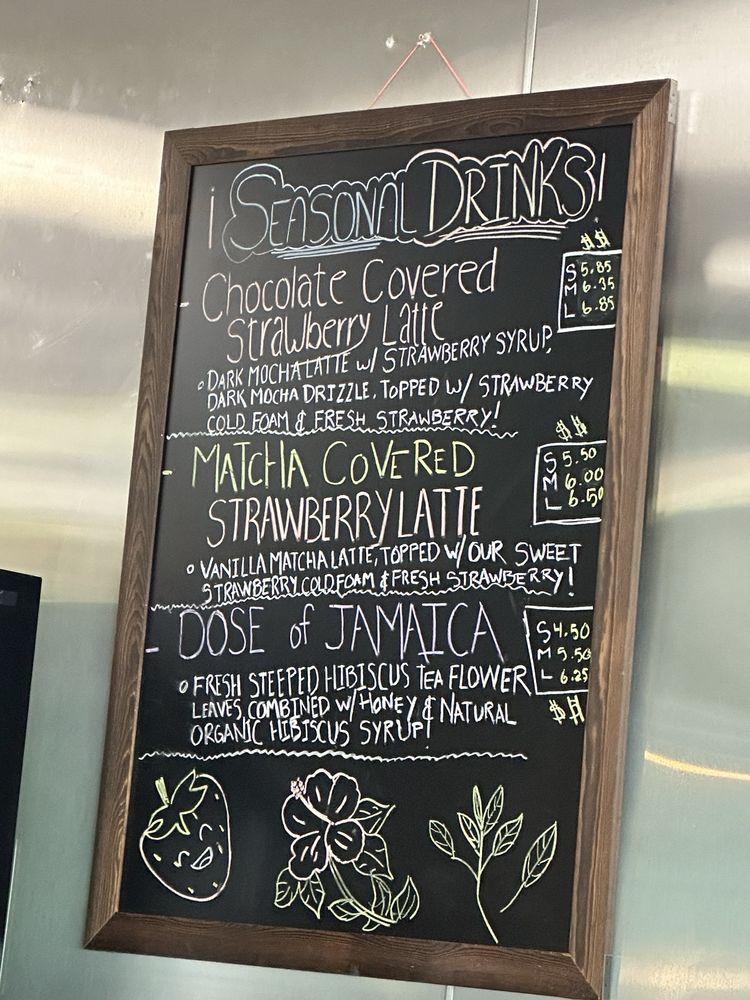 ¡ SEASONAL DRINKS!
$$
Chocolate Covered
Strawberry Latte
S 5.85
M 6.35
L 6.85
◦ DARK MOCHA LATTE W/ STRAWBERRY SYRUP,
DARK MOCHA DRIZZLE, TOPPED W/ STRAWBERRY
COLD FOAM & FRESH STRAWBERRY!
$$
- MATCHA COVERED
STRAWBERRY LATTE
S 5.50
M 6.00
L 6.50
◦ VANILLA MATCHA LATTE, TOPPED W/ OUR SWEET
STRAWBERRY COLD FOAM & FRESH STRAWBERRY!
- DOSE of JAMAICA
S 4.50
M 5.50
L 6.25
$$
◦ FRESH STEEPED HIBISCUS TEA FLOWER
LEAVES, COMBINED W/ HONEY & NATURAL
ORGANIC HIBISCUS SYRUP!